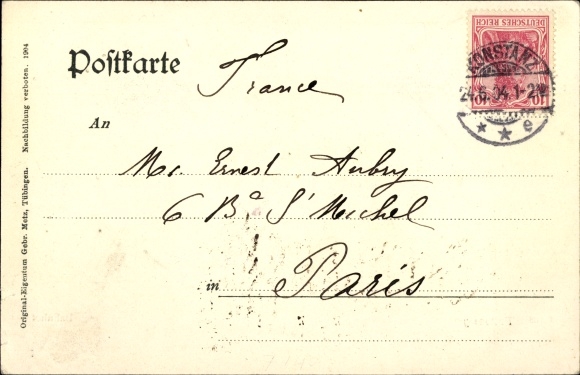 Postkarte
France
An
Mr. Ernest Aubry
6 Bd St Michel
in Paris
DEUTSCHES REICH
10 10
KONSTANZ
24.6.04.1-2N
* * e
Original-Eigentum Gebr. Metz, Tübingen. Nachbildung verboten. 1904